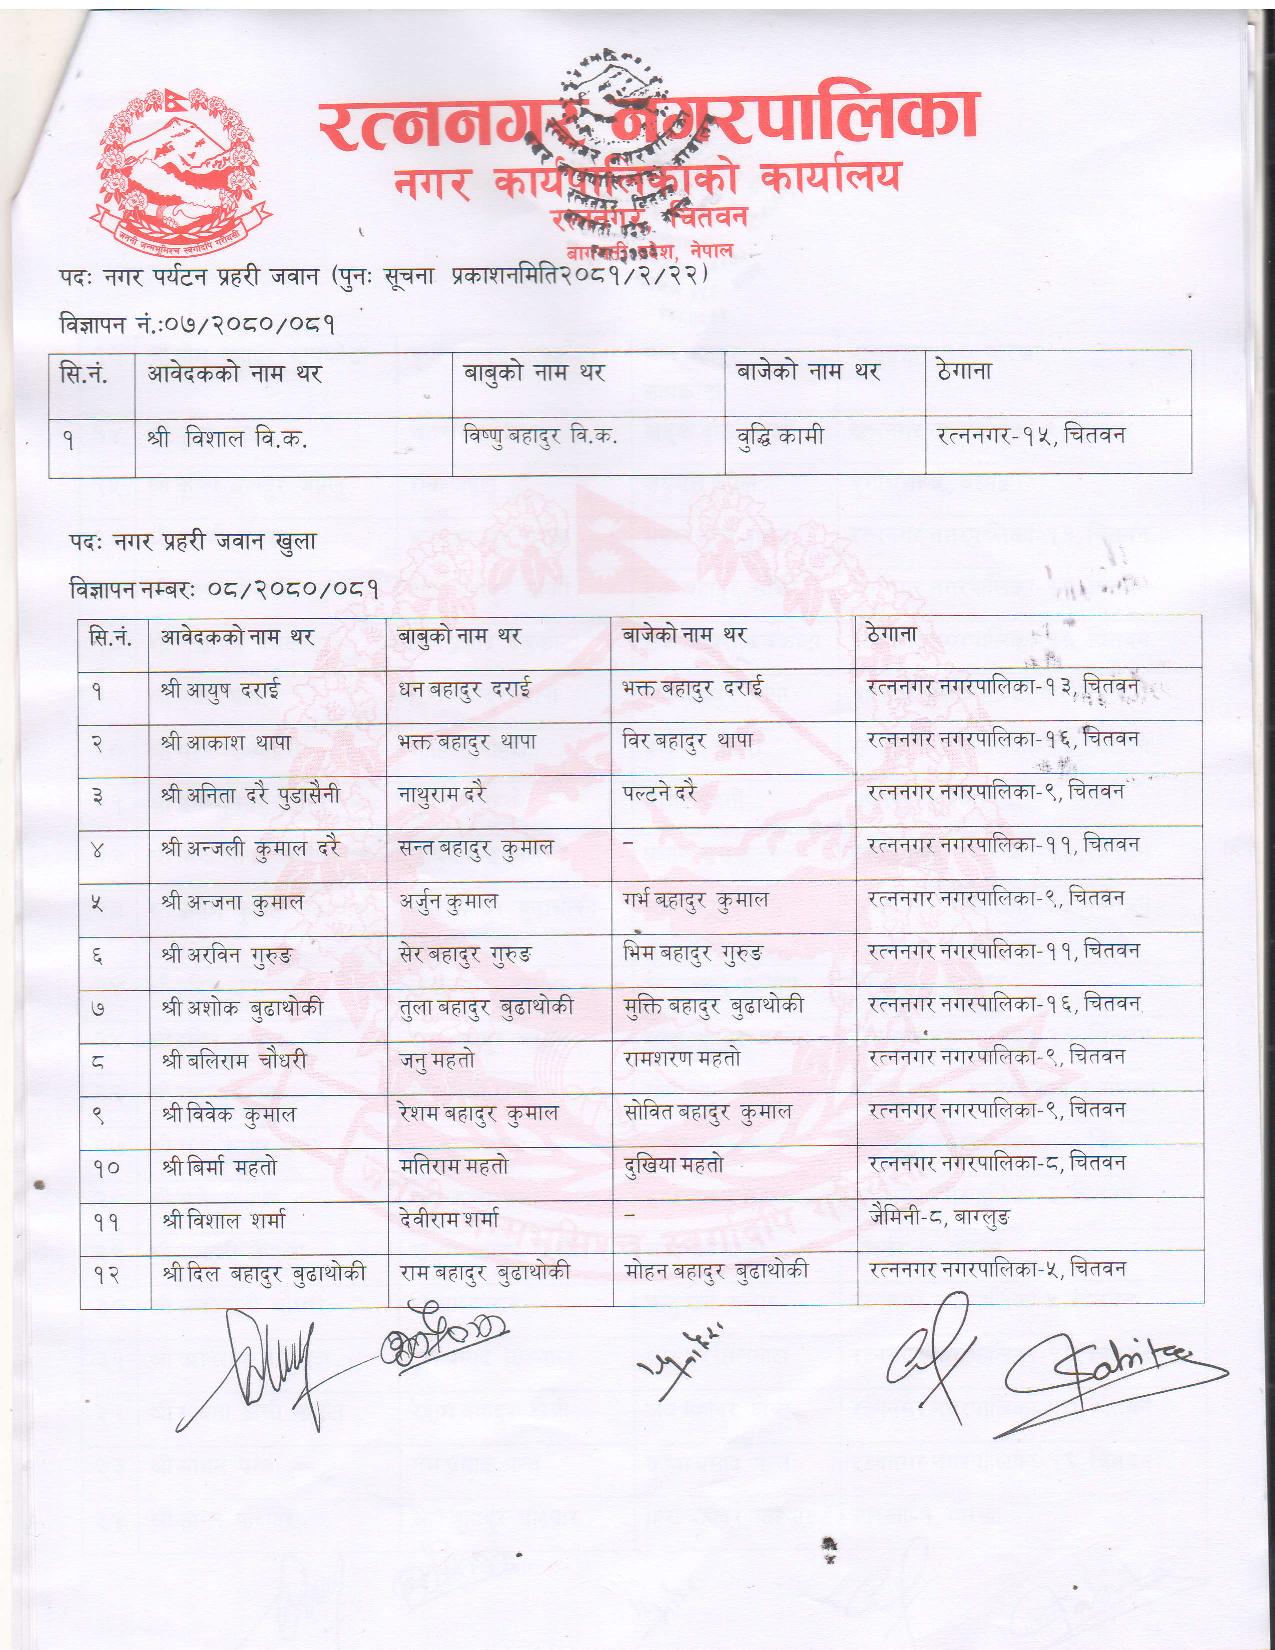 रत्ननगर नगरपालिका
नगर कार्यपालिकाको कार्यालय
रत्ननगर, चितवन
बागमती प्रदेश, नेपाल
जननी जन्मभूमिश्च स्वर्गादपि गरीयसी
पदः नगर पर्यटन प्रहरी जवान (पुनः सूचना प्रकाशनमिति२०८१/२/२२)
विज्ञापन नं.:०७/२०८०/०८१
सि.नं. आवेदकको नाम थर बाबुको नाम थर बाजेको नाम थर ठेगाना
१ श्री विशाल वि.क. विष्णु बहादुर वि.क. वुद्धि कामी रत्ननगर-१५, चितवन
पदः नगर प्रहरी जवान खुला
विज्ञापन नम्बरः ०८/२०८०/०८१
सि.नं. आवेदकको नाम थर बाबुको नाम थर बाजेको नाम थर ठेगाना
१ श्री आयुष दराई धन बहादुर दराई भक्त बहादुर दराई रत्ननगर नगरपालिका-१३, चितवन
२ श्री आकाश थापा भक्त बहादुर थापा विर बहादुर थापा रत्ननगर नगरपालिका-१६, चितवन
३ श्री अनिता दरै पुडासैनी नाथुराम दरै पल्टने दरै रत्ननगर नगरपालिका-९, चितवन
४ श्री अन्जली कुमाल दरै सन्त बहादुर कुमाल - रत्ननगर नगरपालिका-११, चितवन
५ श्री अन्जना कुमाल अर्जुन कुमाल गर्भ बहादुर कुमाल रत्ननगर नगरपालिका-९, चितवन
६ श्री अरविन गुरुङ सेर बहादुर गुरुङ भिम बहादुर गुरुङ रत्ननगर नगरपालिका-११, चितवन
७ श्री अशोक बुढाथोकी तुला बहादुर बुढाथोकी मुक्ति बहादुर बुढाथोकी रत्ननगर नगरपालिका-१६, चितवन
८ श्री बलिराम चौधरी जनु महतो रामशरण महतो रत्ननगर नगरपालिका-९, चितवन
९ श्री विवेक कुमाल रेशम बहादुर कुमाल सोवित बहादुर कुमाल रत्ननगर नगरपालिका-९, चितवन
१० श्री बिर्मा महतो मतिराम महतो दुखिया महतो रत्ननगर नगरपालिका-८, चितवन
११ श्री विशाल शर्मा देवीराम शर्मा - जैमिनी-८, बाग्लुङ
१२ श्री दिल बहादुर बुढाथोकी राम बहादुर बुढाथोकी मोहन बहादुर बुढाथोकी रत्ननगर नगरपालिका-५, चितवन